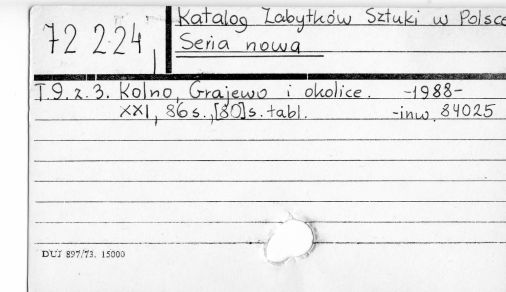 72 2.24 Katalog Zabytków Sztuki w Polsce
Seria nowa
T.9. z. 3. Kolno, Grajewo i okolice. -1988-
XXI, 86 s., [80] s. tabl. -inw. 84025
DUJ 897/73. 15000